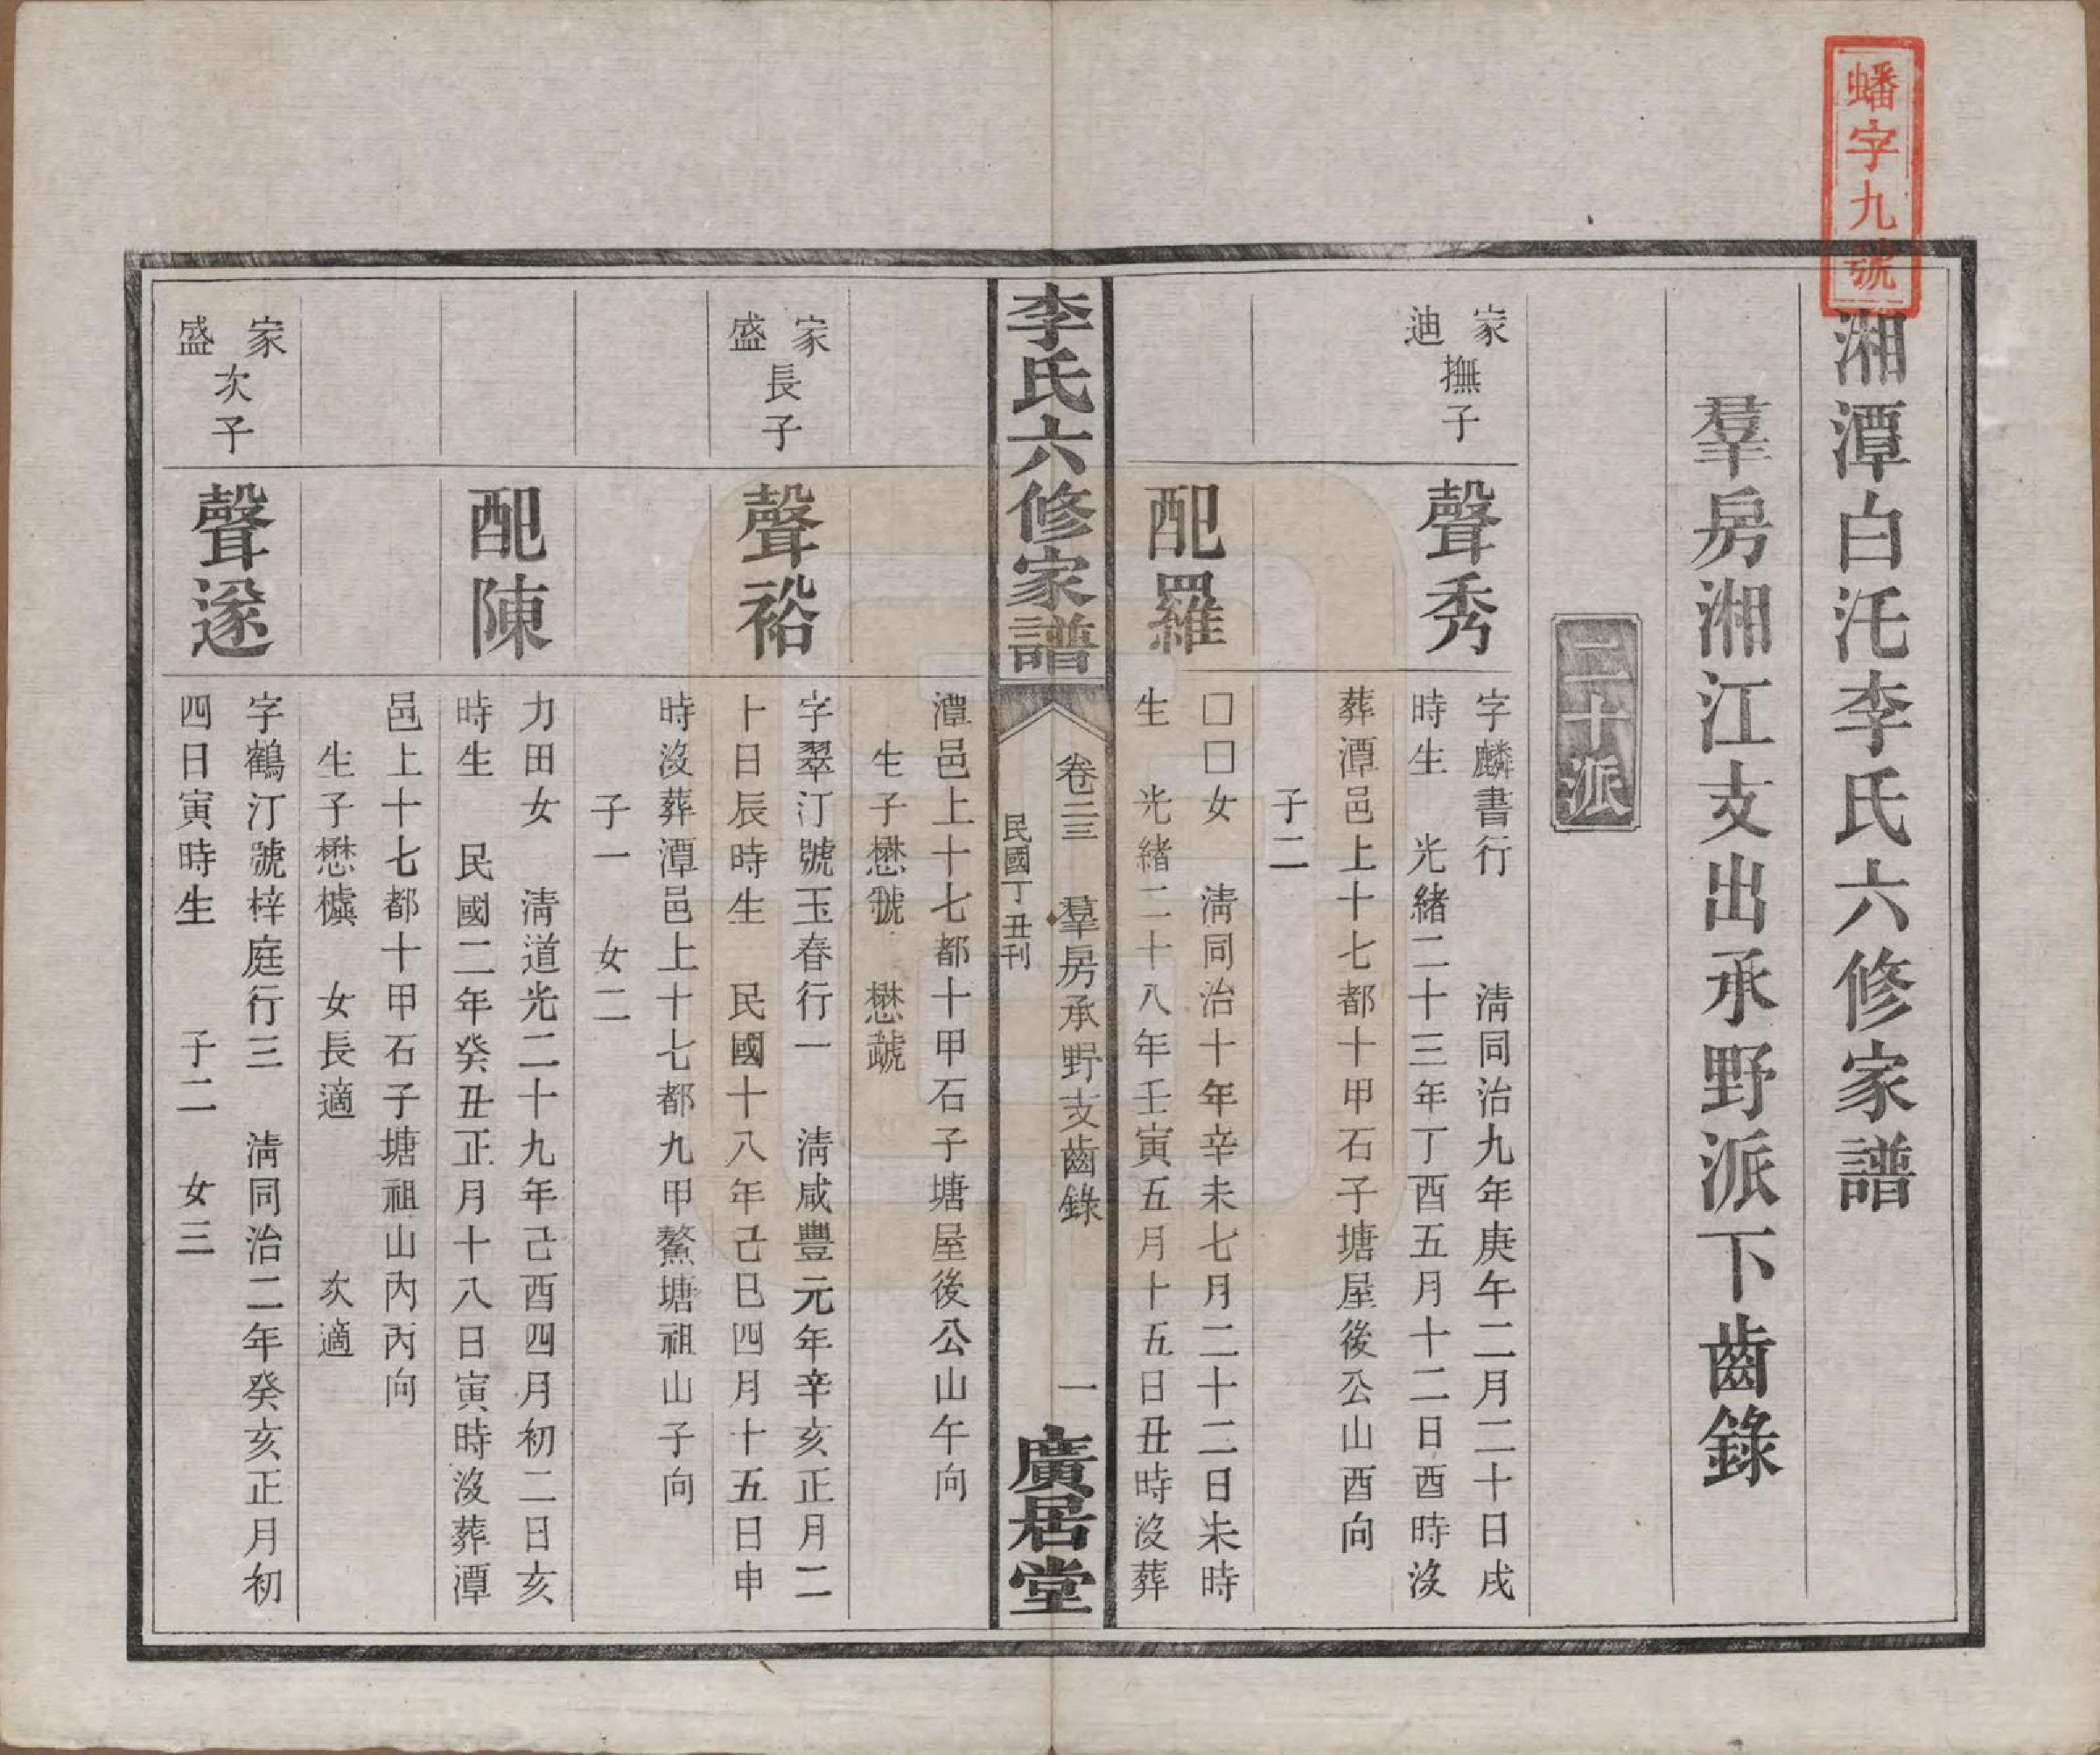 蟠字九號
湘潭白汑李氏六修家譜
羣房湘江支出承野派下齒錄
二十派
家迪撫子
聲秀
字麟書行　清同治九年庚午二月二十日戌
時生　光緒二十三年丁酉五月十二日酉時沒
葬潭邑上十七都十甲石子塘屋後公山酉向
子二
配羅
□□女　清同治十年辛未七月二十二日未時
生　光緒二十八年壬寅五月十五日丑時沒葬
李氏六修家譜
卷二三　羣房承野支齒錄　一
民國丁丑刊
廣居堂
潭邑上十七都十甲石子塘屋後公山午向
生子懋虢　懋虣
家盛長子
聲裕
字翠汀號玉春行一　清咸豐元年辛亥正月二
十日辰時生　民國十八年己巳四月十五日申
時沒葬潭邑上十七都九甲鰲塘祖山子向
子一　女二
配陳
力田女　清道光二十九年己酉四月初二日亥
時生　民國二年癸丑正月十八日寅時沒葬潭
邑上十七都十甲石子塘祖山內丙向
生子懋櫖　女長適　次適
家盛次子
聲遂
字鶴汀號梓庭行三　清同治二年癸亥正月初
四日寅時生　子二　女三